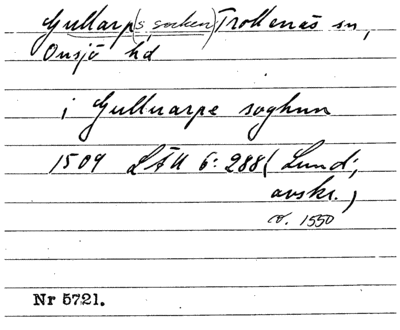 Gullarp (s. socken) Trollenäs sn,
Onsjö hd
i Gulluarpe soghun
1509 LÄU 6: 288 (Lund;
avskr.)
c. 1550
Nr 5721.